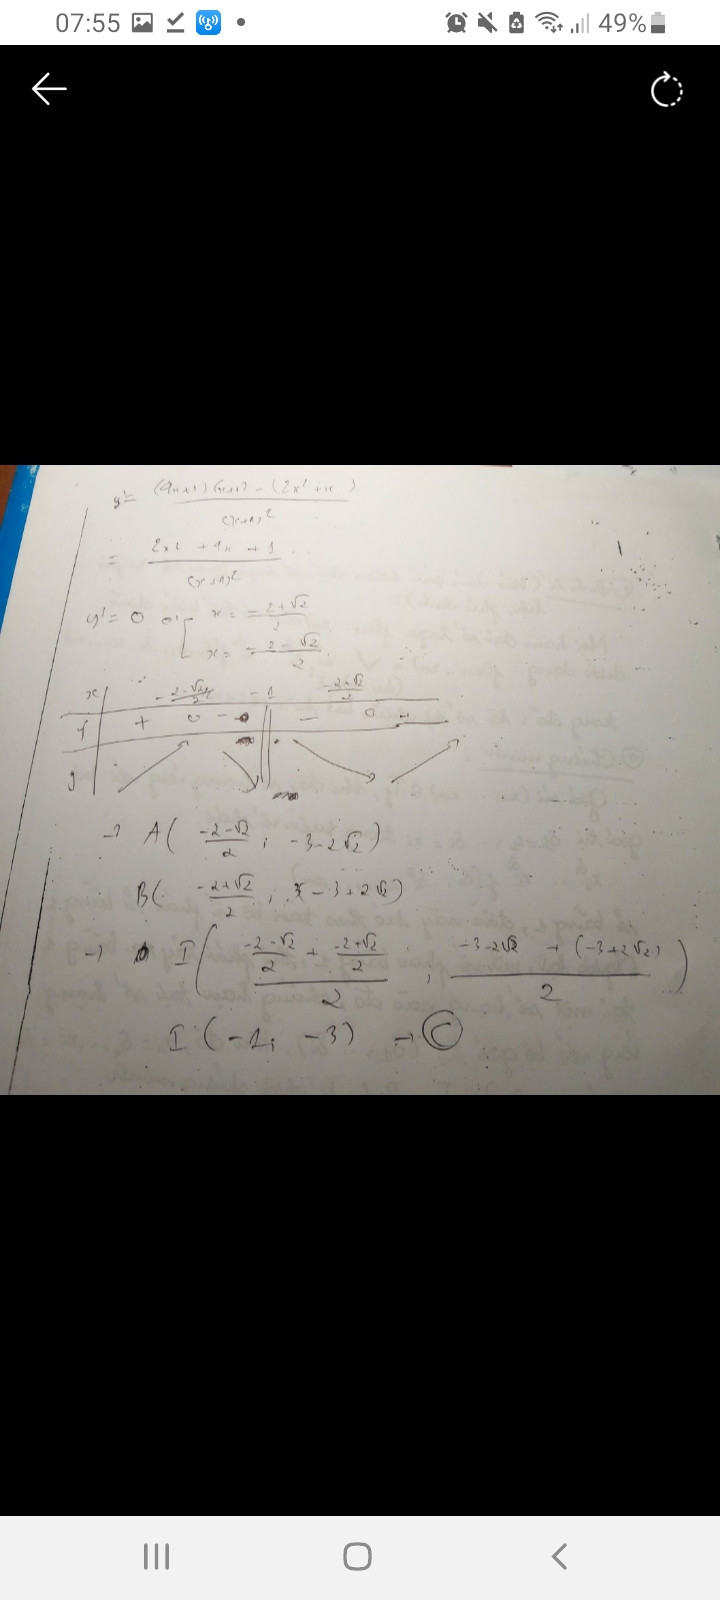 07:55 49%
y' = (4x+1)(x+1) - (2x² + x) / (x+1)²
= 2x² + 4x + 1 / (x+1)²
y' = 0 x = -2+√2 / 2
x = -2-√2 / 2
x -2-√2 / 2 -1 -2+√2 / 2
+ 0 - || - 0 +
y
→ A( -2-√2 / 2 ; -3-2√2 )
B( -2+√2 / 2 ; -3+2√2 )
→ I( -2-√2 / 2 + -2+√2 / 2 / 2 ; -3-2√2 + (-3+2√2) / 2 )
I (-1; -3) → C